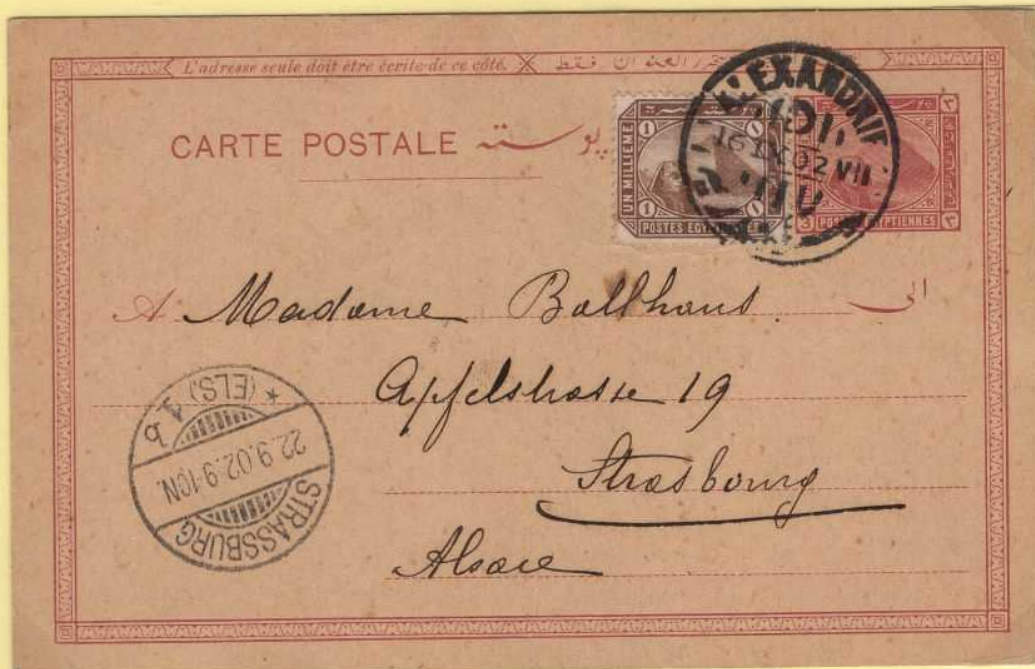 L'adresse seule doit être écrite de ce côté. العنوان فقط
CARTE POSTALE پوسته
UN MILLIEME
1 1
1 1
POSTES EGYP
ALEXANDRIE
IX 02 VII
3 POS YPTIENNES ٣
A Madame Ballhaus الى
Apfelstrasse 19
Strasbourg
Alsace
STRASSBURG
* (ELS.) 1 b
22.9.02.9-10N.